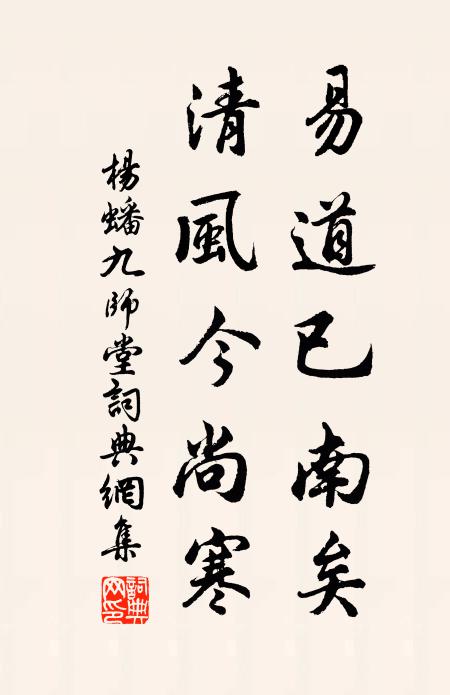 易道已南矣
清風今尚寒
楊蟠九師堂詞典網集
詞典網印